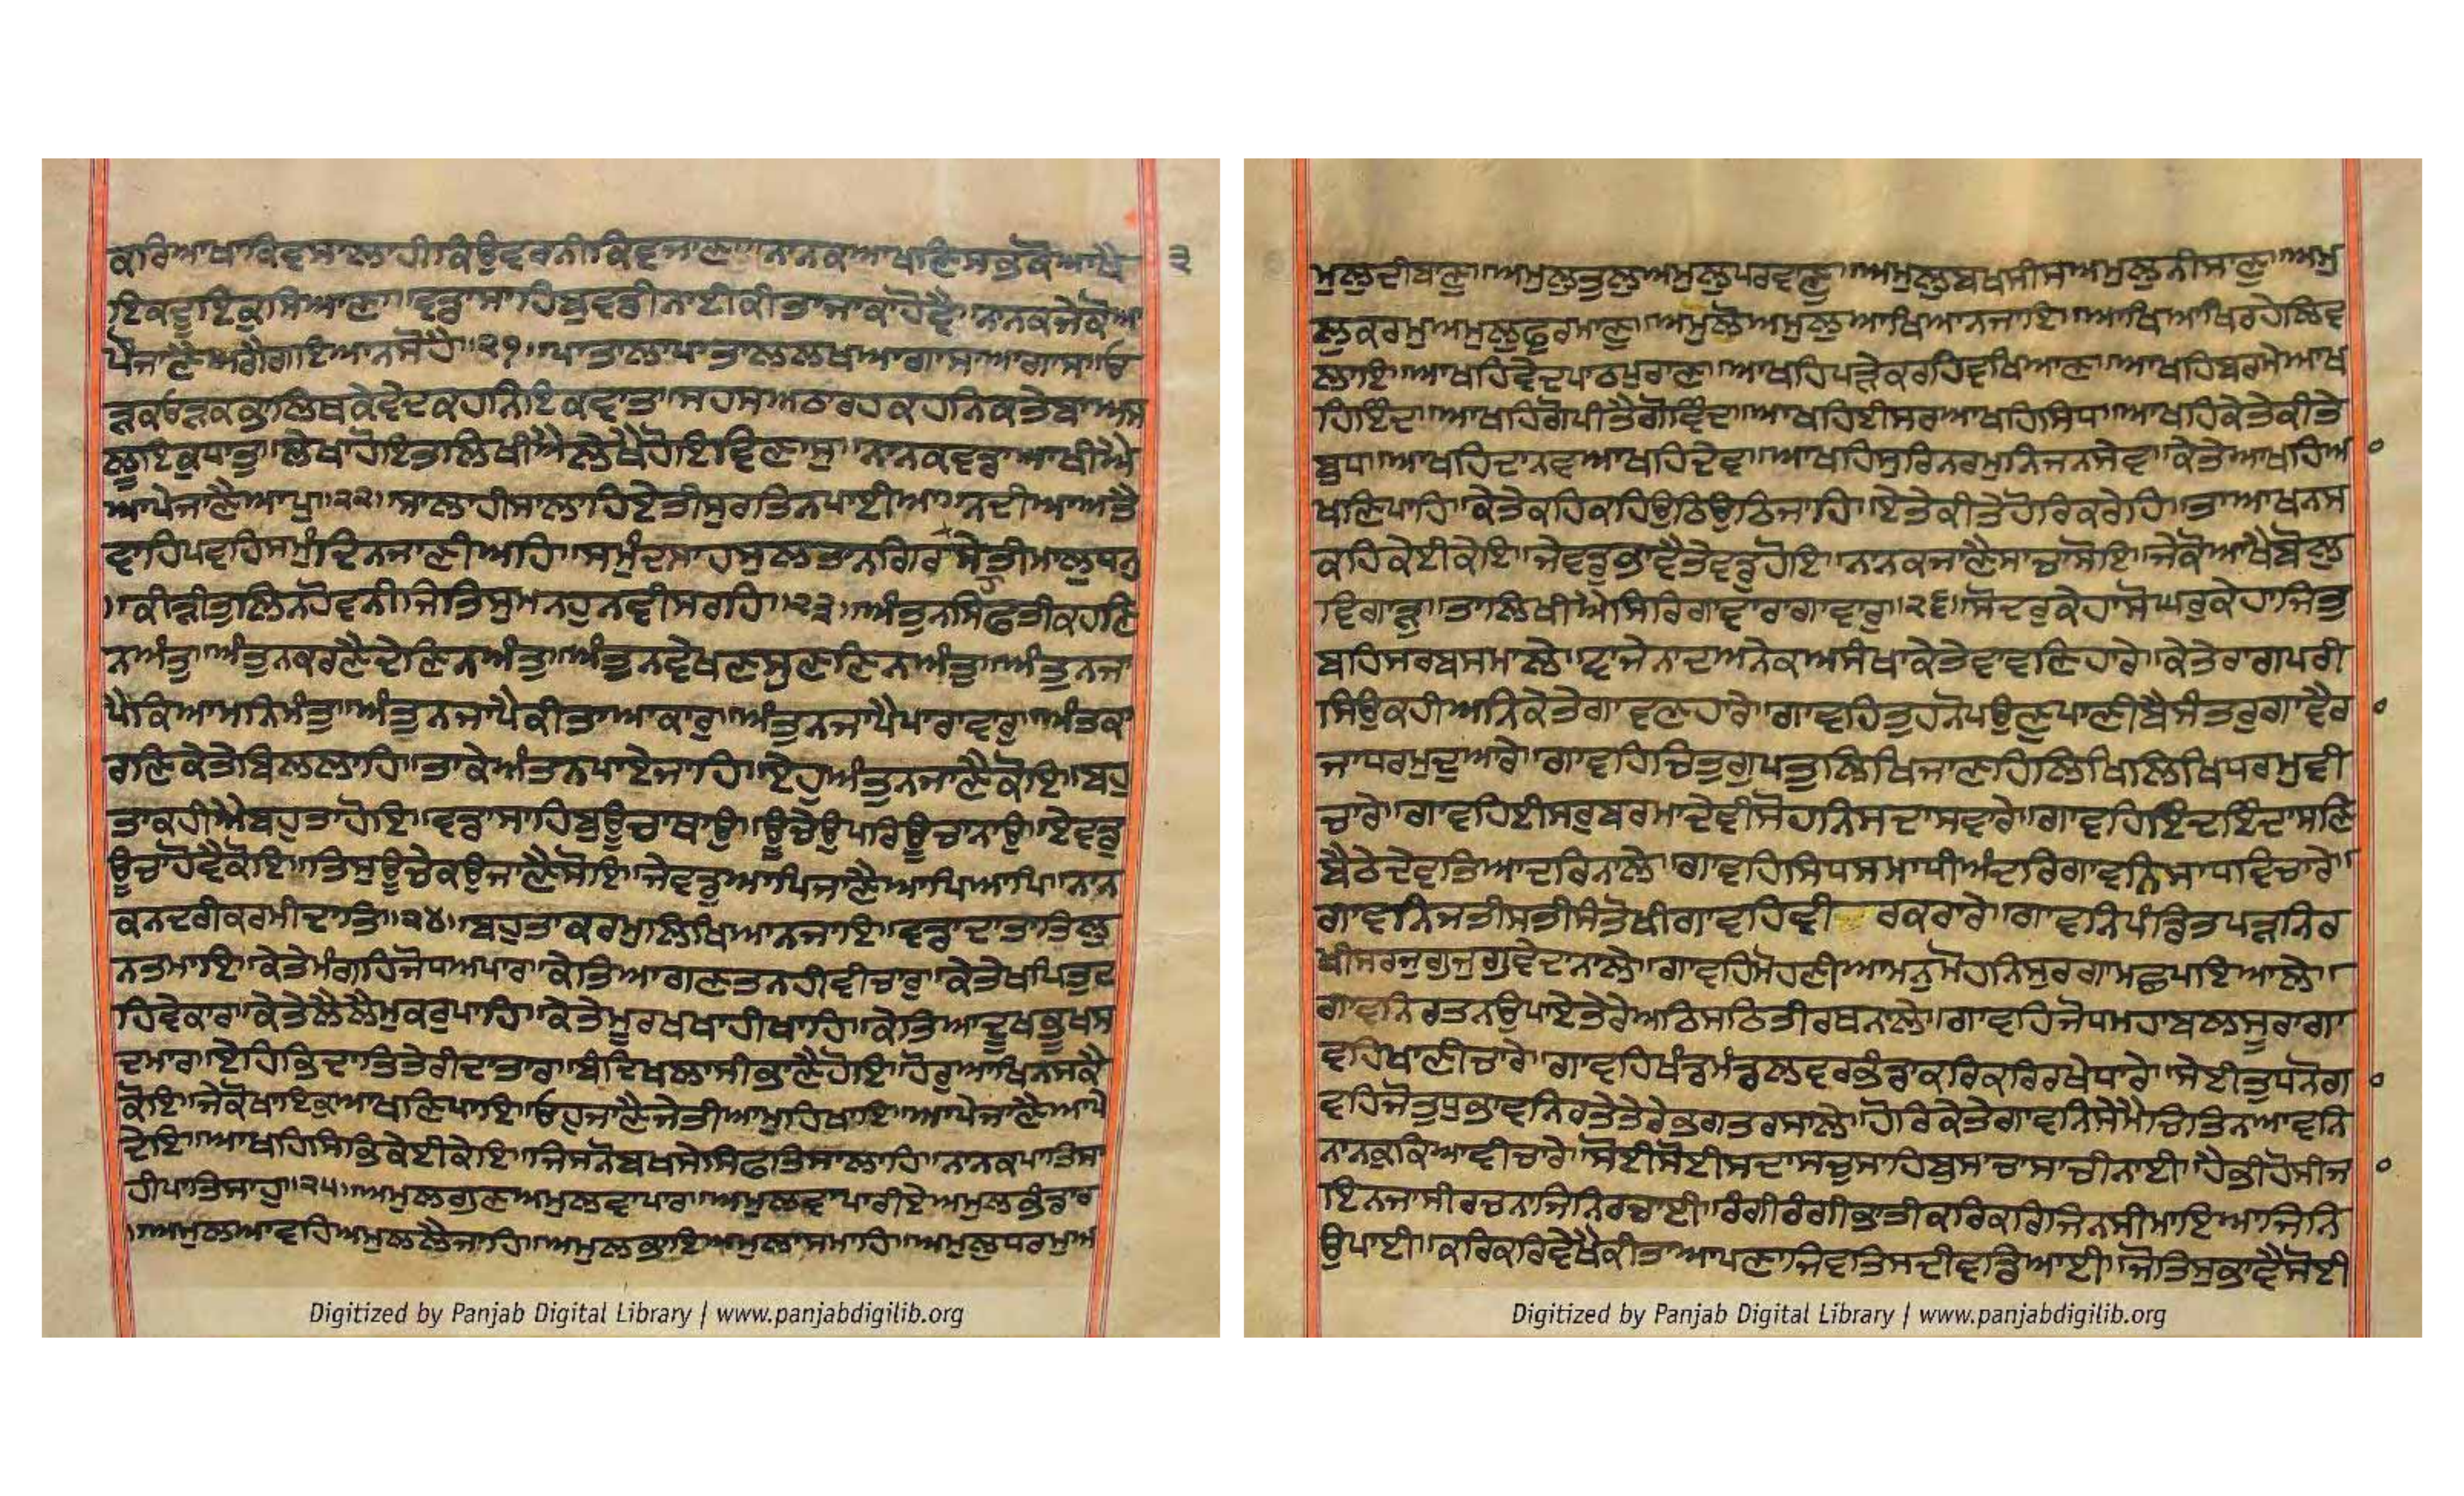 ਕਰਿਆਖਾਕਿਵਸਾਲਾਹੀਕਿਉਵਰਨੀਕਿਵਜਾਣਾ॥ਨਾਨਕਆਖਣਿਸਭੁਕੋਆਖੈ
੩
ਇਕਦੂਇਕੁਸਿਆਣਾ॥ਵਡਾਸਾਹਿਬੁਵਡੀਨਾਈਕੀਤਾਜਾਕਾਹੋਵੈ॥ਨਾਨਕਜੇਕੋਆ
ਪੌਜਾਣੈਅਗੈਗਇਆਨਸੋਹੈ॥੨੧॥ਪਾਤਾਲਾਪਾਤਾਲਲਖਆਗਾਸਾਆਗਾਸ॥ਓ
ੜਕਓੜਕਭਾਲਿਥਕੇਵੇਦਕਹਨਿਇਕਵਾਤ॥ਸਹਸਅਠਾਰਹਕਹਨਿਕਤੇਬਾਅਸ
ਲੂਇਕੁਧਾਤੁ॥ਲੇਖਾਹੋਇਤਲਿਖੀਐਲੇਖੈਹੋਇਵਿਣਾਸੁ॥ਨਾਨਕਵਡਾਆਖੀਐ
ਆਪੇਜਾਣੈਆਪੁ॥੨੨॥ਸਾਲਾਹੀਸਾਲਾਹਿਏਤੀਸੁਰਤਿਨਪਾਈਆ॥ਨਦੀਆਅਤੈ
ਵਾਹਪਵਹਿਸਮੁੰਦਿਨਜਾਣੀਅਹਿ॥ਸਮੁੰਦਸਾਹਸੁਲਤਾਨਗਿਰਾਸੇਤੀਮਾਲੁਧਨੁ
॥ਕੀੜੀਤੁਲਿਨਹੋਵਨੀਜੇਤਿਸੁਮਨਹੁਨਵੀਸਰਹਿ॥੨੩॥ਅੰਤੁਨਸਿਫਤੀਕਹਣਿ
ਨਅੰਤੁ॥ਅੰਤੁਨਕਰਣੈਦੇਣਿਨਅੰਤੁ॥ਅੰਤੁਨਵੇਖਣਸੁਣਣਿਨਅੰਤੁ॥ਅੰਤੁਨਜਾ
ਪੈਕਿਆਮਨਿਮੰਤੁ॥ਅੰਤੁਨਜਾਪੈਕੀਤਾਆਕਾਰੁ॥ਅੰਤੁਨਜਾਪੈਪਾਰਾਵਾਰੁ॥ਅੰਤਕਾ
ਰਣਿਕੇਤੇਬਿਲਲਾਹਿ॥ਤਾਕੇਅੰਤਨਪਾਏਜਾਹਿ॥ਏਹੁਅੰਤੁਨਜਾਣੈਕੋਇ॥ਬਹੁ
ਤਾਕਹੀਐਬਹੁਤਾਹੋਇ॥ਵਡਾਸਾਹਿਬੁਊਚਾਥਾਉ॥ਊਚੇਉਪਰਿਊਚਾਨਾਉ॥ਏਵਡੁ
ਊਚਾਹੋਵੈਕੋਇ॥ਤਿਸੁਊਚੇਕਉਜਾਣੈਸੋਇ॥ਜੇਵਡੁਆਪਿਜਾਣੈਆਪਿਆਪਿ॥ਨਾਨ
ਕਨਦਰੀਕਰਮੀਦਾਤਿ॥੨੪॥ਬਹੁਤਾਕਰਮੁਲਿਖਿਆਨਜਾਇ॥ਵਡਾਦਾਤਾਤਿਲੁ
ਨਤਮਾਇ॥ਕੇਤੇਮੰਗਹਿਜੋਧਅਪਾਰ॥ਕੇਤਿਆਗਣਤਨਹੀਵੀਚਾਰੁ॥ਕੇਤੇਖਪਿਤੁਟ
ਹਿਵੇਕਾਰ॥ਕੇਤੇਲੈਲੈਮੁਕਰੁਪਾਹਿ॥ਕੇਤੇਮੂਰਖਖਾਹੀਖਾਹਿ॥ਕੇਤਿਆਦੂਖਭੂਖਸ
ਦਮਾਰ॥ਏਹਿਭਿਦਾਤਿਤੇਰੀਦਾਤਾਰ॥ਬੰਦਿਖਲਾਸੀਭਾਣੈਹੋਇ॥ਹੋਰੁਆਖਿਨਸਕੈ
ਕੋਇ॥ਜੇਕੋਖਾਇਕੁਆਖਣਿਪਾਇ॥ਓਹੁਜਾਣੈਜੇਤੀਆਮੁਹਿਖਾਇ॥ਆਪੇਜਾਣੈਆਪੇ
ਦੇਇ॥ਆਖਹਿਸਿਭਿਕੇਈਕੇਇ॥ਜਿਸਨੋਬਖਸੇਸਿਫਤਿਸਾਲਾਹ॥ਨਾਨਕਪਾਤਿਸਾ
ਹੀਪਾਤਿਸਾਹੁ॥੨੫॥ਅਮੁਲਗੁਣਅਮੁਲਵਾਪਾਰ॥ਅਮੁਲਵਾਪਾਰੀਏਅਮੁਲਭੰਡਾਰ
॥ਅਮੁਲਆਵਹਿਅਮੁਲਲੈਜਾਹਿ॥ਅਮੁਲਭਾਇਅਮੁਲਾਸਮਾਹਿ॥ਅਮੁਲੁਧਰਮੁਅ
Digitized by Panjab Digital Library | www.panjabdigilib.org
ਮੁਲੁਦੀਬਾਣੁ॥ਅਮੁਲੁਤੁਲੁਅਮੁਲੁਪਰਵਾਣੁ॥ਅਮੁਲੁਬਖਸੀਸਅਮੁਲੁਨੀਸਾਣੁ॥ਅਮੁ
ਲੁਕਰਮੁਅਮੁਲੁਫੁਰਮਾਣੁ॥ਅਮੁਲੋਅਮੁਲੁਆਖਿਆਨਜਾਇ॥ਆਖਿਆਖਿਰਹੇਲਿਵ
ਲਾਇ॥ਆਖਹਿਵੇਦਪਾਠਪੁਰਾਣ॥ਆਖਹਿਪੜੇਕਰਹਿਵਖਿਆਣ॥ਆਖਹਿਬਰਮੇਆਖ
ਹਿਇੰਦ॥ਆਖਹਿਗੋਪੀਤੈਗੋਵਿੰਦ॥ਆਖਹਿਈਸਰਆਖਹਿਸਿਧ॥ਆਖਹਿਕੇਤੇਕੀਤੇ
ਬੁਧ॥ਆਖਹਿਦਾਨਵਆਖਹਿਦੇਵ॥ਆਖਹਿਸੁਰਿਨਰਮੁਨਿਜਨਸੇਵ॥ਕੇਤੇਆਖਹਿਆ
ਖਣਿਪਾਹਿ॥ਕੇਤੇਕਹਿਕਹਿਉਠਿਉਠਿਜਾਹਿ॥ਏਤੇਕੀਤੇਹੋਰਿਕਰੇਹਿ॥ਤਾਆਖਨਸ
ਕਹਿਕੇਈਕੇਇ॥ਜੇਵਡੁਭਾਵੈਤੇਵਡੁਹੋਇ॥ਨਾਨਕਜਾਣੈਸਾਚਾਸੋਇ॥ਜੇਕੋਆਖੈਬੋਲੁ
ਵਿਗਾੜੁ॥ਤਾਲਿਖੀਐਸਿਰਿਗਾਵਾਰਾਗਾਵਾਰੁ॥੨੬॥ਸੋਦਰੁਕੇਹਾਸੋਘਰੁਕੇਹਾਜਿਤੁ
ਬਹਿਸਰਬਸਮਾਲੇ॥ਵਾਜੇਨਾਦਅਨੇਕਅਸੰਖਾਕੇਤੇਵਾਵਣਿਹਾਰੇ॥ਕੇਤੇਰਾਗਪਰੀ
ਸਿਉਕਹੀਅਨਿਕੇਤੇਗਾਵਣਹਾਰੇ॥ਗਾਵਹਿਤੁਹਨੋਪਉਣੁਪਾਣੀਬੈਸੰਤਰੁਗਾਵੈਰਾ
ਜਾਧਰਮੁਦੁਆਰੇ॥ਗਾਵਹਿਚਿਤੁਗੁਪਤੁਲਿਖਿਜਾਣਹਿਲਿਖਿਲਿਖਿਧਰਮੁਵੀ
ਚਾਰੇ॥ਗਾਵਹਿਈਸਰੁਬਰਮਾਦੇਵੀਸੋਹਨਿਸਦਾਸਵਾਰੇ॥ਗਾਵਹਿਇੰਦਇੰਦਾਸਣਿ
ਬੈਠੇਦੇਵਤਿਆਦਰਿਨਾਲੇ॥ਗਾਵਹਿਸਿਧਸਮਾਧੀਅੰਦਰਿਗਾਵਨਿਸਾਧਵਿਚਾਰੇ॥
ਗਾਵਨਿਜਤੀਸਤੀਸੰਤੋਖੀਗਾਵਹਿਵੀਰਕਰਾਰੇ॥ਗਾਵਨਿਪੰਡਿਤਪੜਨਿਰ
ਖੀਸਰਜੁਗੁਜੁਗੁਵੇਦਾਨਾਲੇ॥ਗਾਵਹਿਮੋਹਣੀਆਮਨੁਮੋਹਨਿਸੁਰਗਾਮਛਪਇਆਲੇ॥
ਗਾਵਨਿਰਤਨਉਪਾਏਤੇਰੇਅਠਿਸਠਿਤੀਰਥਨਾਲੇ॥ਗਾਵਹਿਜੋਧਮਹਾਬਲਸੂਰਾਗਾ
ਵਹਿਖਾਣੀਚਾਰੇ॥ਗਾਵਹਿਖੰਡਮੰਡਲਵਰਭੰਡਾਕਰਿਕਰਿਰਖੇਧਾਰੇ॥ਸੇਈਤੁਧਨੋਗਾ
ਵਹਿਜੋਤੁਧੁਭਾਵਨਿਰਤੇਤੇਰੇਭਗਤਰਸਾਲੇ॥ਹੋਰਿਕੇਤੇਗਾਵਨਿਸੇਮੈਚਿਤਿਨਆਵਨਿ
ਨਾਨਕੁਕਿਆਵੀਚਾਰੇ॥ਸੋਈਸੋਈਸਦਾਸਚੁਸਾਹਿਬੁਸਾਚਾਸਾਚੀਨਾਈ॥ਹੈਭੀਹੋਸੀਜਾ
ਇਨਜਾਸੀਰਚਨਾਜਿਨਿਰਚਾਈ॥ਰੰਗੀਰੰਗੀਭਾਤੀਕਰਿਕਰਿਜਿਨਸੀਮਾਇਆਜਿਨਿ
ਉਪਾਈ॥ਕਰਿਕਰਿਵੇਖੈਕੀਤਾਆਪਣਾਜਿਵਤਿਸਦੀਵਡਿਆਈ॥ਜੋਤਿਸੁਭਾਵੈਸੋਈ
Digitized by Panjab Digital Library | www.panjabdigilib.org